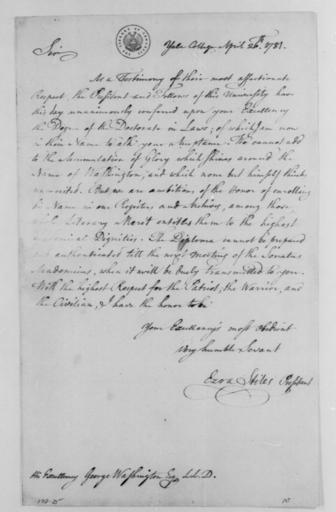 Yale College April 26th. 1781.
Sir
As a Testimony of their most affectionate
Respect the President and Fellows of this University have
this day unanimously conferred upon your Excellency
the Degree of the Doctorate in Laws; of which I am now
in their Name to ask your Acceptance. We cannot add
to the Accumulation of Glory which shines around the
Name of Washington, and which none but himself thinks
unmerited. But we are ambitious of the Honor of enrolling
Name in our Registers and Archives, among those
whose Literary Merit entitles them to the highest
Academical Dignities. The Diploma cannot be prepared
and authenticated till the next meeting of the Senatus
Academicus, when it will be duly transmitted to you.
With the highest Respect for the Patriot, the Warrior, and
the Civilian, I have the honor to be
Your Excellency's most Obedient
very humble Servant
Ezra Stiles President
His Excellency George Washington Esq. L.L.D.